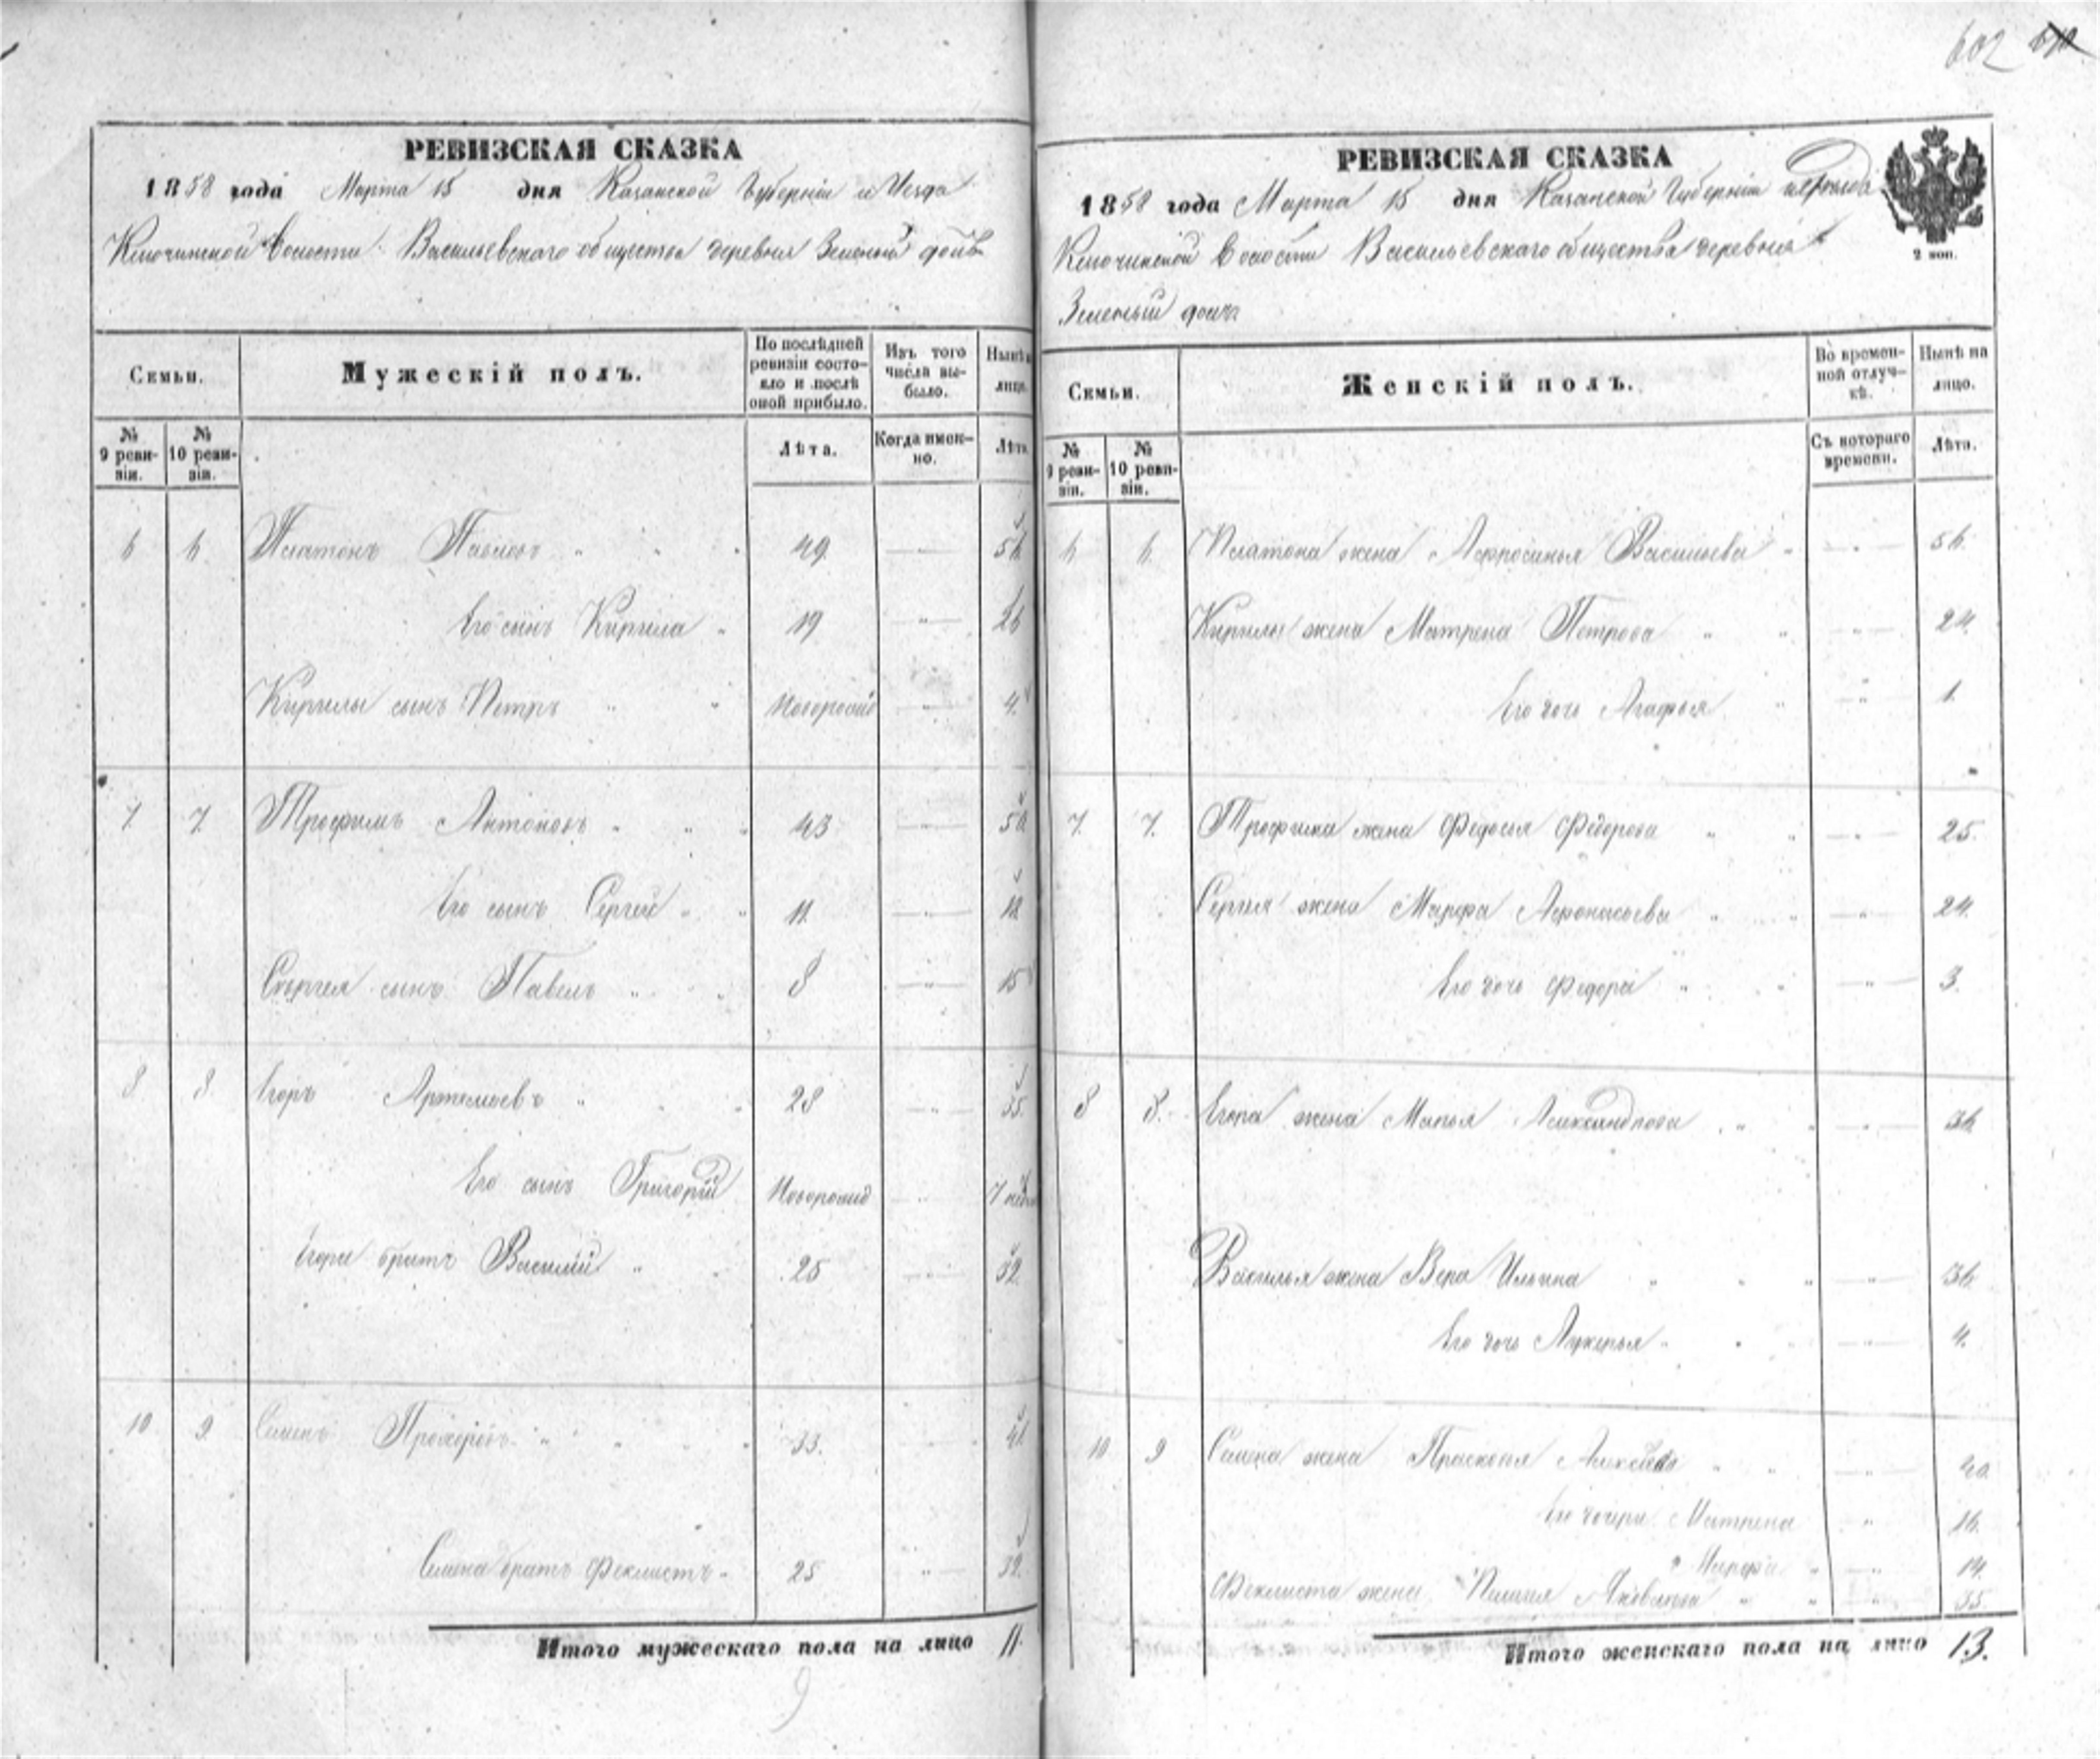 602
РЕВИЗСКАЯ СКАЗКА
1858 года Марта 15 дня Казанской Губерніи и Уезда
Ключинской Волости Васильевскаго общества деревни Зеленый долъ
Семьи.
Мужескій полъ.
По послѣдней ревизіи состояло и послѣ оной прибыло.
Изъ того числа выбыло.
Нынѣ на лицо.
№ 9 ревизіи.
№ 10 ревизіи.
Лѣта.
Когда именно.
Лѣта.
6 6 Платонъ Павловъ " " " 49. — " — 56
Его сынъ Кирила " 19 — " — 26
Кирилы сынъ Петръ " " Новорожд — " — 4.
7. 7. Трофимъ Антоновъ " " " 43 — " — 50.
Его сынъ Сергей " " 11. — " — 18.
Сергея сынъ Павелъ " " 8 — " — 15
8 8. Егоръ Артемьевъ " " " 28 — " — 35.
Его сынъ Григорій Новорожд " 7
Егора братъ Василій " " 25 — " — 32.
10 9. Семенъ Прохоровъ " " " " 33. — " —
Семена братъ Феклистъ " 25 — " — 32.
Итого мужескаго пола на лицо 11.
9
РЕВИЗСКАЯ СКАЗКА
1858 года Марта 15 дня Казанской Губерніи
Ключинской Волости Васильевскаго общества деревни
Зеленый долъ
2 коп.
Семьи.
Женскій полъ.
Во временной отлучкѣ.
Нынѣ на лицо.
№ 9 ревизіи.
№ 10 ревизіи.
Съ котораго времени.
Лѣта.
6 6. Платона жена Афросинья Васильева " — " — 56.
Кирилы жена Матрена Петрова " " — " — 24.
Его дочь Агафья " — " — 1.
7. 7. Трофима жена Федосья Федорова " " — " — 25.
Сергея жена Марфа Афонасьева " " — " — 24.
Его дочь Федора " " — " — 3.
8 8. Егора жена Марья Александрова " " — " — 36.
Василья жена Вера Ильина " " " — " — 36.
Его дочь Лукерья " " — " — 4.
10 9 Семена жена Прасковья Алексеева " " — " — 40.
Его дочери Матрена " 16.
" Марфа " — " — 14.
Феклиста жена Яковлева " " — " — 35.
Итого женскаго пола на лицо 13.